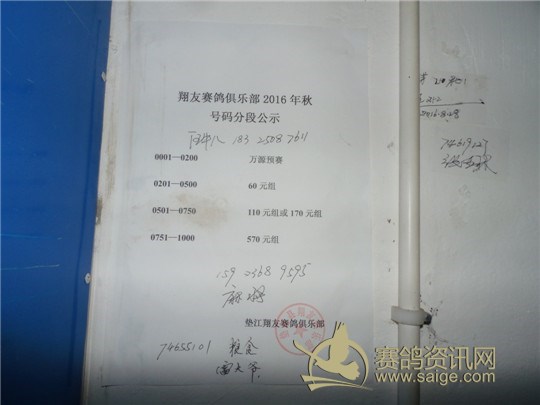 翔友赛鸽俱乐部 2016 年秋
号码分段公示
183 2508 7611
0001—0200 万源预赛
0201—0500 60 元组
0501—0750 110 元组或 170 元组
0751—1000 570 元组
159 2368 9595
垫江翔友赛鸽俱乐部
74655101
74619123
赛鸽资讯网
www.saige.com